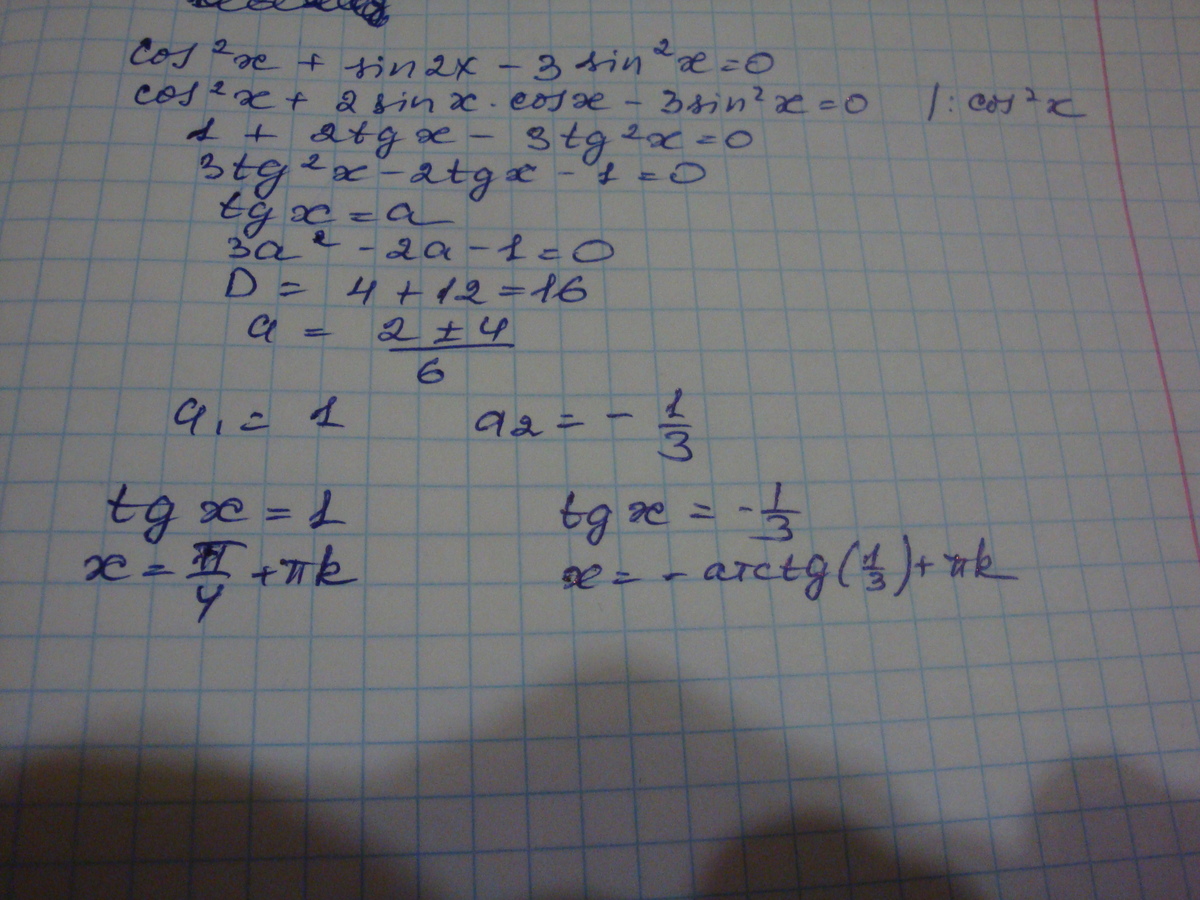 cos²x + sin2x - 3 sin²x = 0
cos²x + 2 sinx · cosx - 3sin²x = 0 /: cos²x
1 + 2tgx - 3tg²x = 0
3tg²x - 2tgx - 1 = 0
tgx = a
3a² - 2a - 1 = 0
D = 4 + 12 = 16
a = (2 ± 4)/6
a₁ = 1 a₂ = - 1/3
tgx = 1 tgx = - 1/3
x = π/4 + πk x = - arctg(1/3) + πk